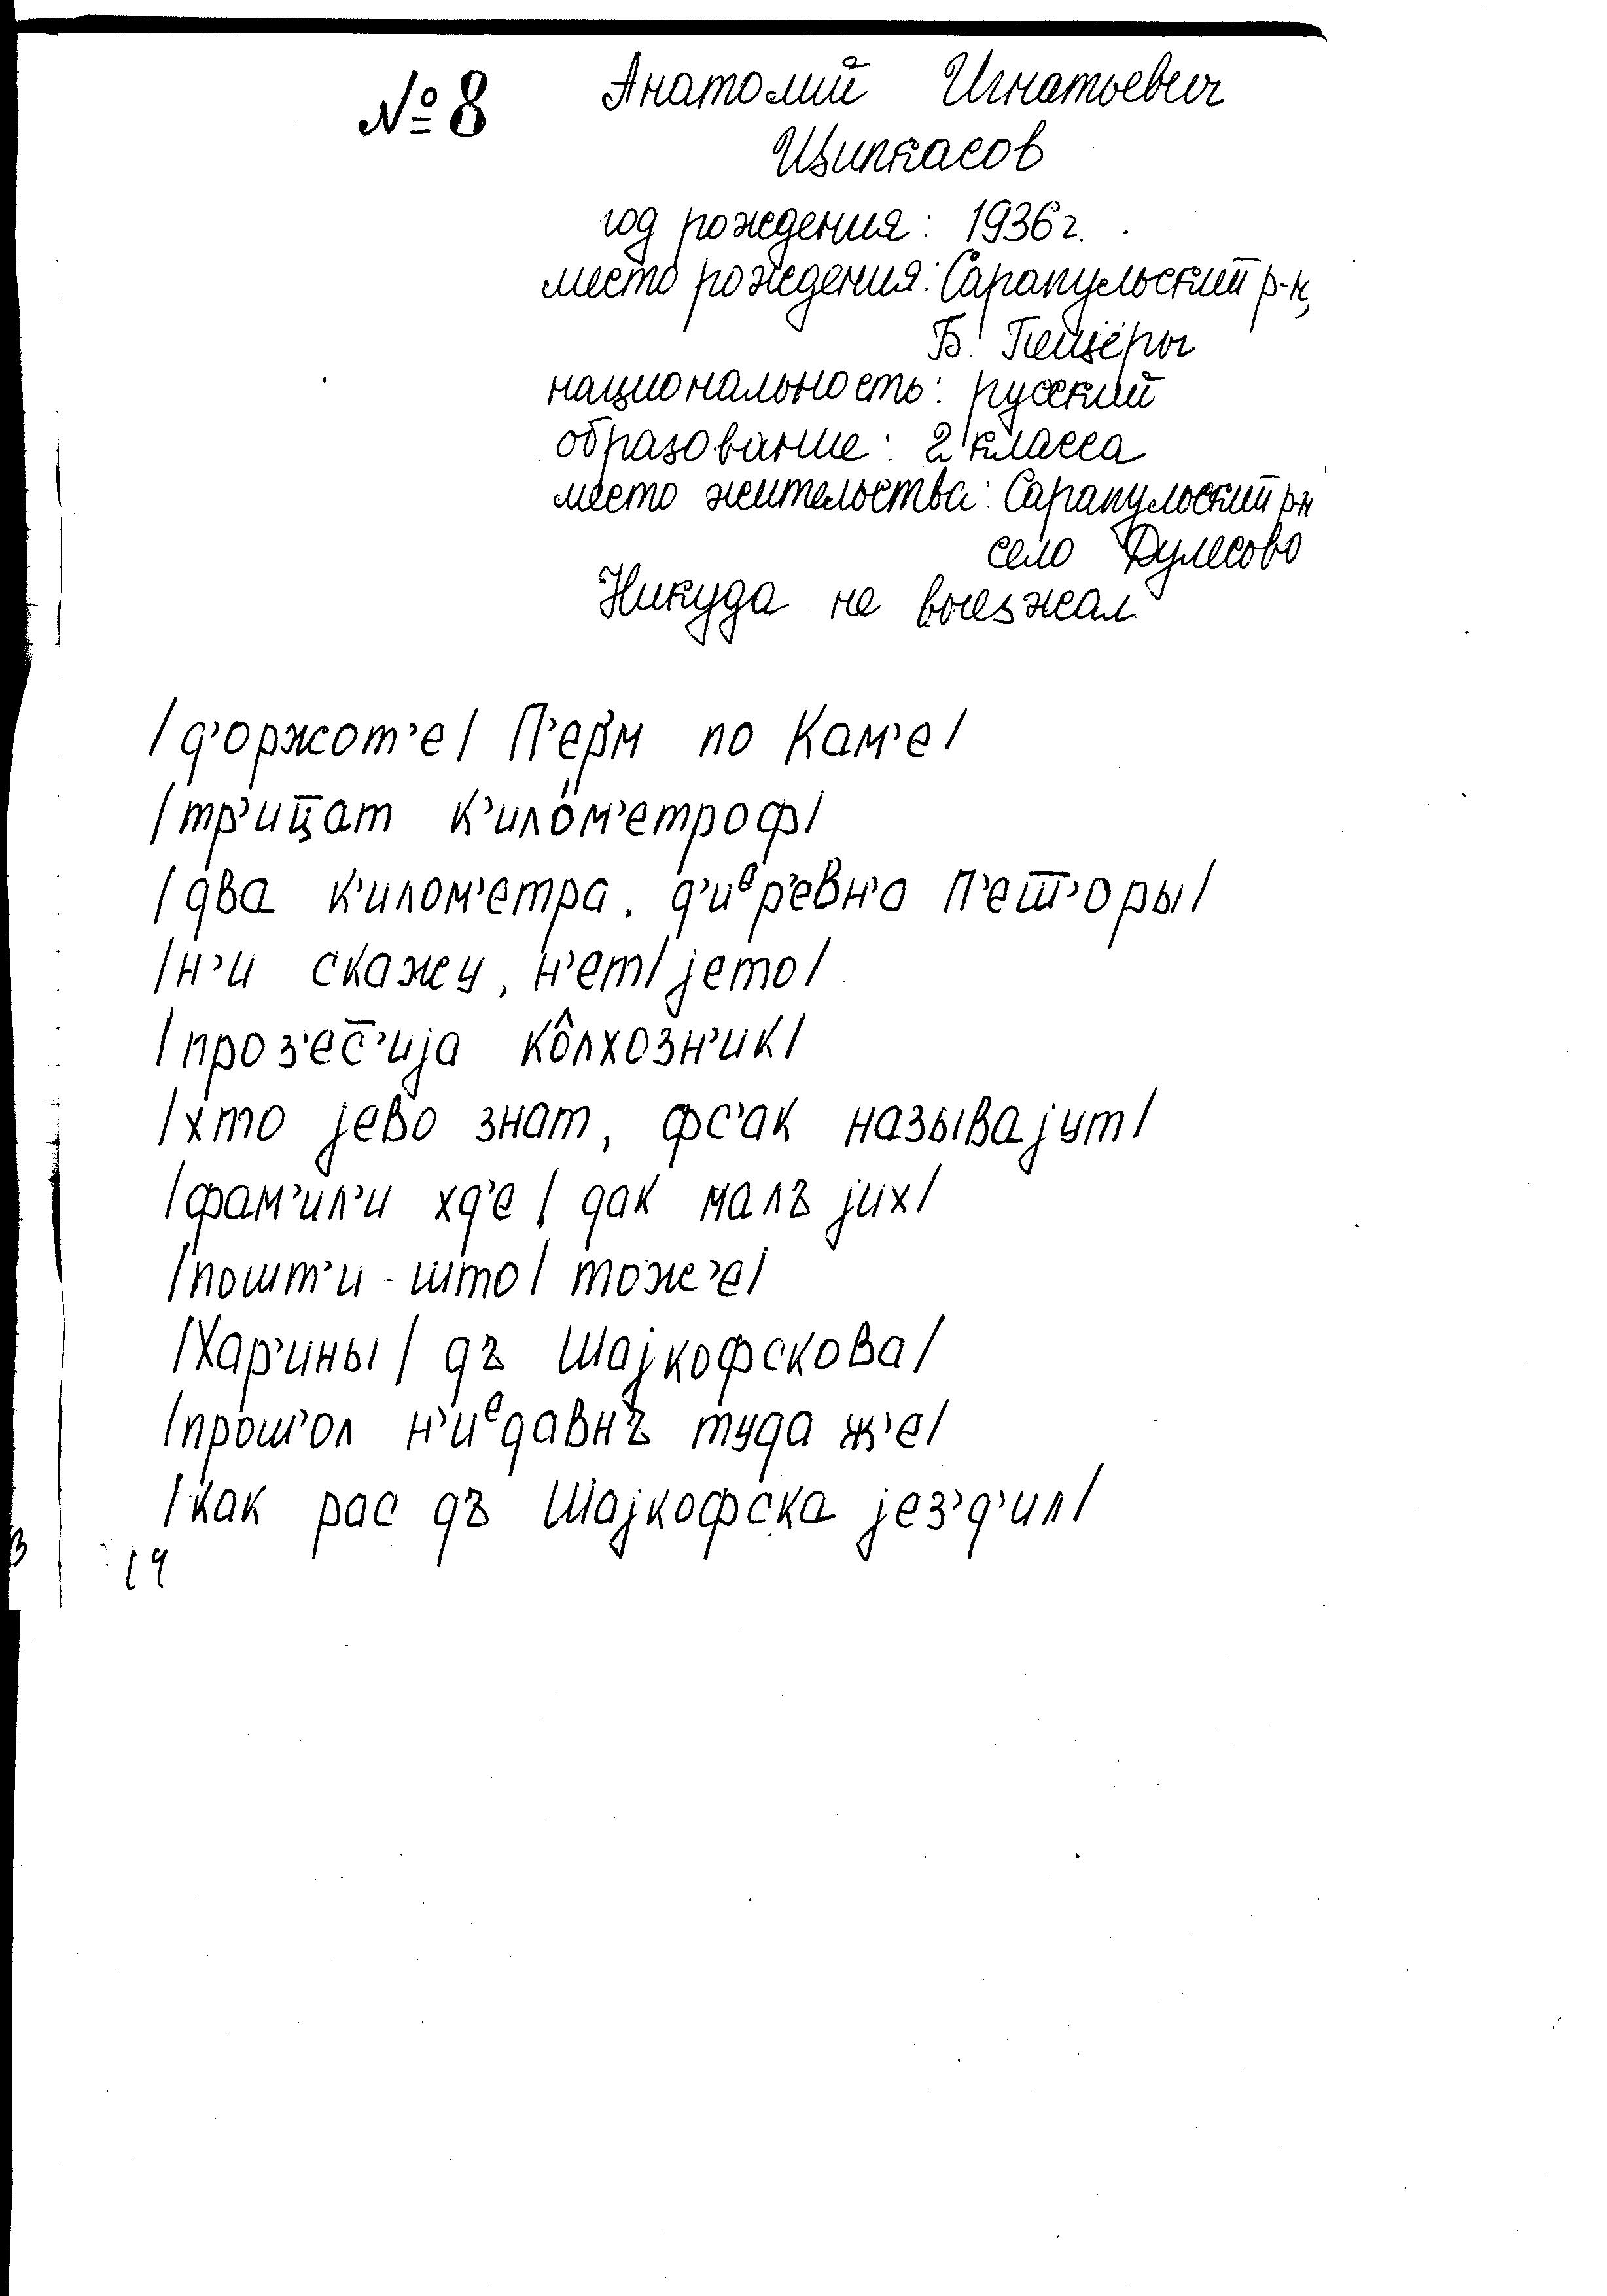 №8 Анатолий Игнатьевич
Щипкасов
год рождения: 1936г.
место рождения: Сарапульский р-н,
Б. Пещеры
национальность: русский
образование: 2 класса
место жительства: Сарапульский р-н
село Дулесово
Никуда не выезжал
/д'оржот'е/ П'ерм по Кам'е/
/тр'иц̅ат к'илом'етроф/
/два к'илом'етра, д'иᵉр'евн'а П'еш̅'оры/
/н'и скажу, н'ет/ јето/
/проз'ес̅'ија ко̂лхозн'ик/
/хто јево знат, фс'ак называјут/
/фам'ил'и хд'е/ дак малъ јих/
/пошт'и - што/ тож'е/
/Хар'ины/ дъ Шајкофскова/
/прош'ол н'иᵉдавнъ туда ж'е/
/как рас дъ Шајкофска јез'д'ил/